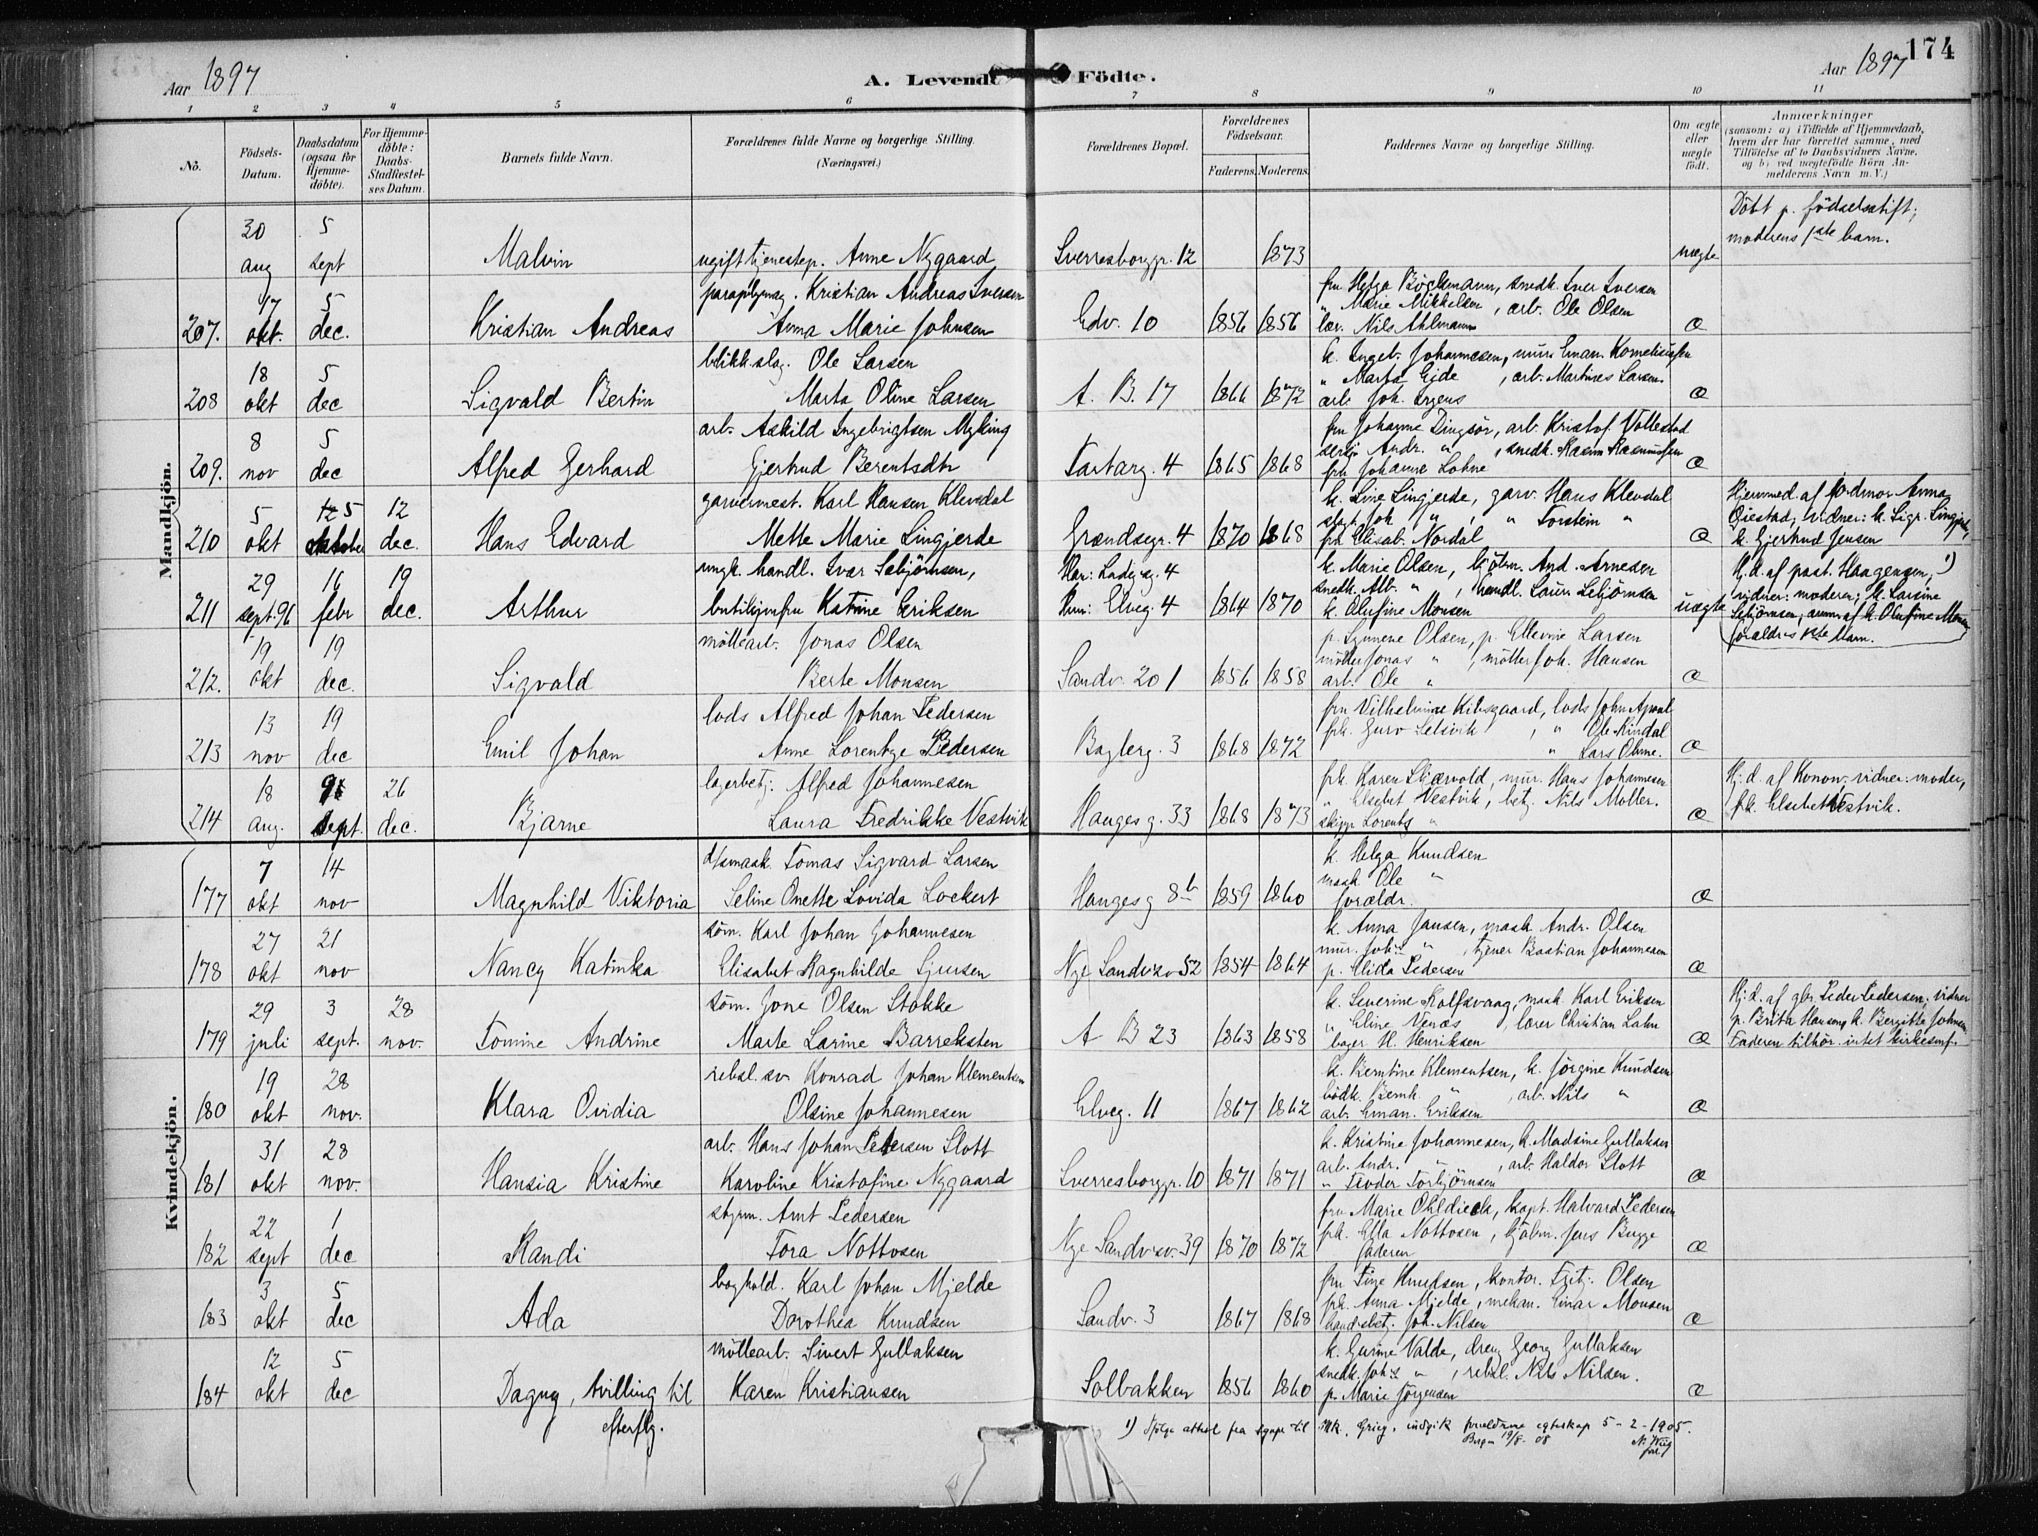 174
Aar 1897
A. Levendt Födte.
Aar 1897
1 2 3 4 5 6 7 8 9 10 11
Nö.
Födsels-Datum.
Daabsdatum (ogsaa for Hjemme-döbte).
For Hjemme-döbte: Daabs-Stadfæstel-ses Datum.
Barnets fulde Navn.
Forældrenes fulde Navne og borgerlige Stilling. (Næringsvei.)
Forældrenes Bopæl.
Forældrenes Födselsaar.
Faderens. Moderens.
Faddernes Navne og borgerlige Stilling.
Om ægte eller uægte födt.
Anmærkninger
(saasom: a) i Tilfælde af Hjemmedaab,
hvem der har forrettet samme, med
Tilföielse af to Daabsvidners Navne.
og b) ved uægtefödte Börn An-
melderens Navn m. V.)
Mandkjön.
30 5 Döbt p. födselsstift;
aug sept Malvin ugift tjenestep. Anne Nygaard Sverresborggr. 12 1873 uægte moderens 1ste barn.
17 5 paraplymag. Kristian Andreas Iversen fru Helga Böckmann, snedk. Iver Iversen
" Marie Mikkelsen, arb. Ole Olsen
207. okt. dec. Kristian Andreas Anna Marie Johnsen Edv. 10 1856 1856 lær. Nils Ahlmann æ
18 5 blikk.slag. Ole Larsen k. Ingeb. Johannesen, mur. Eman.
" Marta Eide, arb. Martines Larsen.
208 okt dec Sigvald Bertin Marta Oline Larsen A. B. 17 1866 1872 arb. Joh. æ
8 5 arb. Askild Ingebrigtsen Myking fru Johanne Dingsör, arb. Kristof. Vollestad
Andr. " , snedk. Rasm. Rasmussen
209. nov dec Alfred Gerhard Gjertrud Berentsdtr Tartarg. 4 1865 1868 frk Johanne Lohne æ
5 12 5 12 garvermest. Karl Hansen Klevdal k. Line Lingjerde, garv. Hans Klevdal Hjemmed. af jordmor Anna
slagt. Joh. " , " Torstein " Öiestad; vidner: k. Sigr. Lingjerde,
210 okt oktober dec. Hans Edvard Mette Marie Lingjerde Grændsegr. 4 1870 1868 frk Elisab. Nordal æ k. Gjertrud Jensen
29 16 19 ungk. handl. Ivar Sebjörnsen, Han: Ladeg.g. 4 k. Marie Olsen, kjöbm. And. Arnesen Hj.d. af past. Haagensen, 1)
snedk. Alb. " , handl. Laur. Sebjörnsen vidner: moderen; k. Larsine
211 sept. 96 febr dec. Arthur butikjomfru Katrine Eriksen Hun: Elveg. 4 1864 1870 k. Olufine Monsen uægte Sebjörnsen; anm. af k. Olufine Monsen
forældres 1ste barn.
19 19 möllearb. Jonas Olsen p. Symene Olsen, p. Ellevine Larsen
möller Jonas " , möller Joh. Hansen
212. okt dec. Sigvald Berte Monsen Sandv. 201 1856 1858 arb. Ole " æ
13 19 lods Alfred Johan Pedersen fru Vilhelmine Kilsgaard, lods John
frk. Guro Selsvik , " Ole Rindal
213 nov dec Emil Johan Anne Lorentze Pedersen Baglerg. 3 1868 1872 " Lars Ohme. æ
18 26 lagerbetj. Alfred Johannesen frk. Karen Skjærvold, mur. Hans Johannesen Hj:d. af Konow; vidner: moder,
" Elsebet Vestvik, betj. Nils Möller. frk. Elsebet Vestvik.
214 aug. sept. dec. Bjarne Laura Fredrikke Vestvik Hauges g. 33 1868 1873 skipp Lorents " æ
Kvindekjön.
7 14 d/smask. Tomas Sigvard Larsen k. Helga Knudsen
mask Ole "
177 okt nov Magnhild Viktoria Seline Onette Lovida Lockert Hauges g 8b 1859 1860 forældr. æ
27 21 söm. Karl Johan Johannesen k. Anna Jansen, mask. Andr. Olsen
mur. Joh.s " , tjener Bastian Johannesen
178 okt nov Nancy Katinka Elisabet Ragnhilde Sjursen Nye Sandvv 52 1854 1864 p. Elida Pedersen æ
29 3 28 söm. Jone Olsen Stokke k. Severine Rolfsvaag, mask Karl Eriksen Hj:d. af gbr. Peder Pedersen; vidner
" Eline Venæs , lærer Christian Lahn p. Brita Hansen, k. Bergitte Johnsen
179 juli sept. nov. Tomine Andrine Marte Larine Barreksten A B 23 1863 1858 bager H. Henriksen æ Faderen tilhör. intet kirkesamf.
19 28 rebsl.sv. Konrad Johan Klementsen k. Berntine Klementsen, k. Jörgine Knudsen
bödk. Bernh. " , arb. Nils "
180 okt nov. Klara Ovidia Olsine Johannesen Elveg. 11 1867 1862 arb. Eman. Eriksen æ
31 28 arb. Hans Johan Petersen Slott k. Kristine Johannesen, k. Madsine Gullaksen
arb. Andr. " , arb. Haldor Slott
181 okt nov. Hansia Kristine Karoline Kristofine Nygaard Sverresborggr. 10 1871 1871 " Teodor Torbjörnsen æ
22 1 styrm. Arnt Pedersen fru Marie Ohldieck, kapt. Halvard Pedersen
frk. Ella Nottvesen, kjöbm. Jens Bugge
182 sept dec Randi Tora Nottvesen Nye Sandvsv. 39 1870 1872 faderen æ
3 5 boghold. Karl Johan Mjelde fru Tine Knudsen, kontor. Olsen
frk. Anna Mjelde, mekan. Einar Monsen
183 okt dec Ada Dorothea Knudsen Sandv. 3 1867 1868 handelsbetj. Joh. Nilsen æ
12 5 möllearb. Sivert Gullaksen k. Gurine Valde, dreng Georg Gullaksen
snedk. Joh.s " , rebsl. Nils Nilsen.
184 okt dec Dagny, tvilling til efterflg. Karen Kristiansen Solbakken 1856 1860 p. Marie Jörgensen æ
1) Ifölge attest fra sogpr til Mk. Grieg, indgik forældrene egteskap 5-2-1905.
Bergen 19/8-08